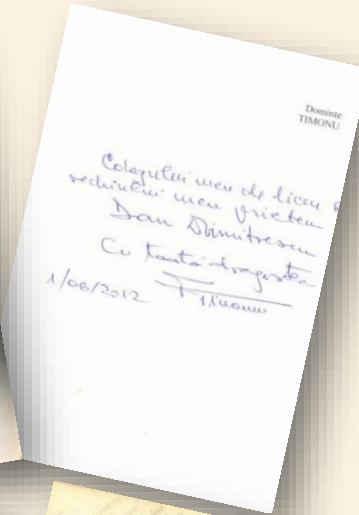 Dominte
TIMONU
Colegului meu de liceu
vechiului meu prieten
Dan Dimitrescu
Cu toată dragostea
1/06/2012 Timonu